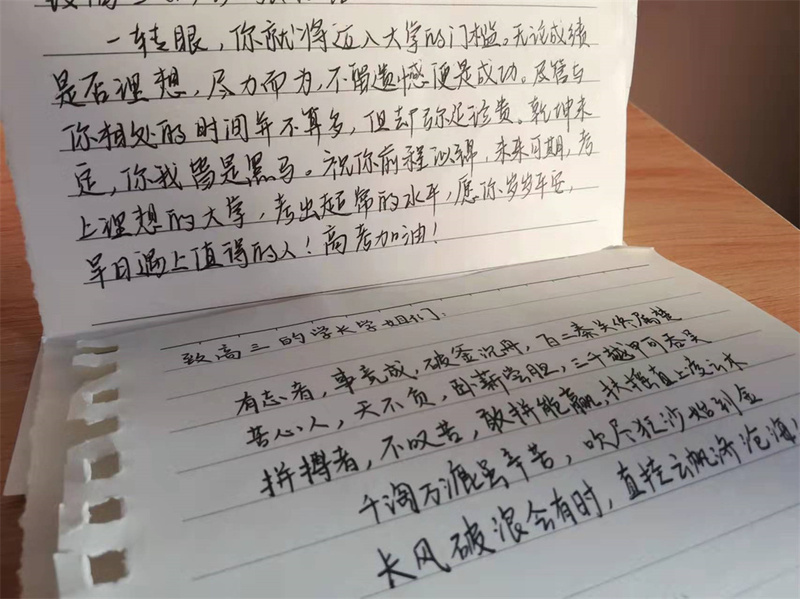 致高三
一转眼，你就将迈入大学的门槛。无论成绩
是否理想，尽力而为，不留遗憾便是成功。尽管与
你相处的时间并不算多，但却弥足珍贵。乾坤未
定，你我皆是黑马。祝你前程似锦，未来可期，考
上理想的大学，考出超常的水平，愿你岁岁平安，
早日遇上值得的人！高考加油！
致高三的学长学姐们：
有志者，事竟成，破釜沉舟，百二秦关终属楚
苦心人，天不负，卧薪尝胆，三千越甲可吞吴
拼搏者，不叹苦，敢拼能赢，扶摇直上凌云木
千淘万漉虽辛苦，吹尽狂沙始到金
长风破浪会有时，直挂云帆济沧海！